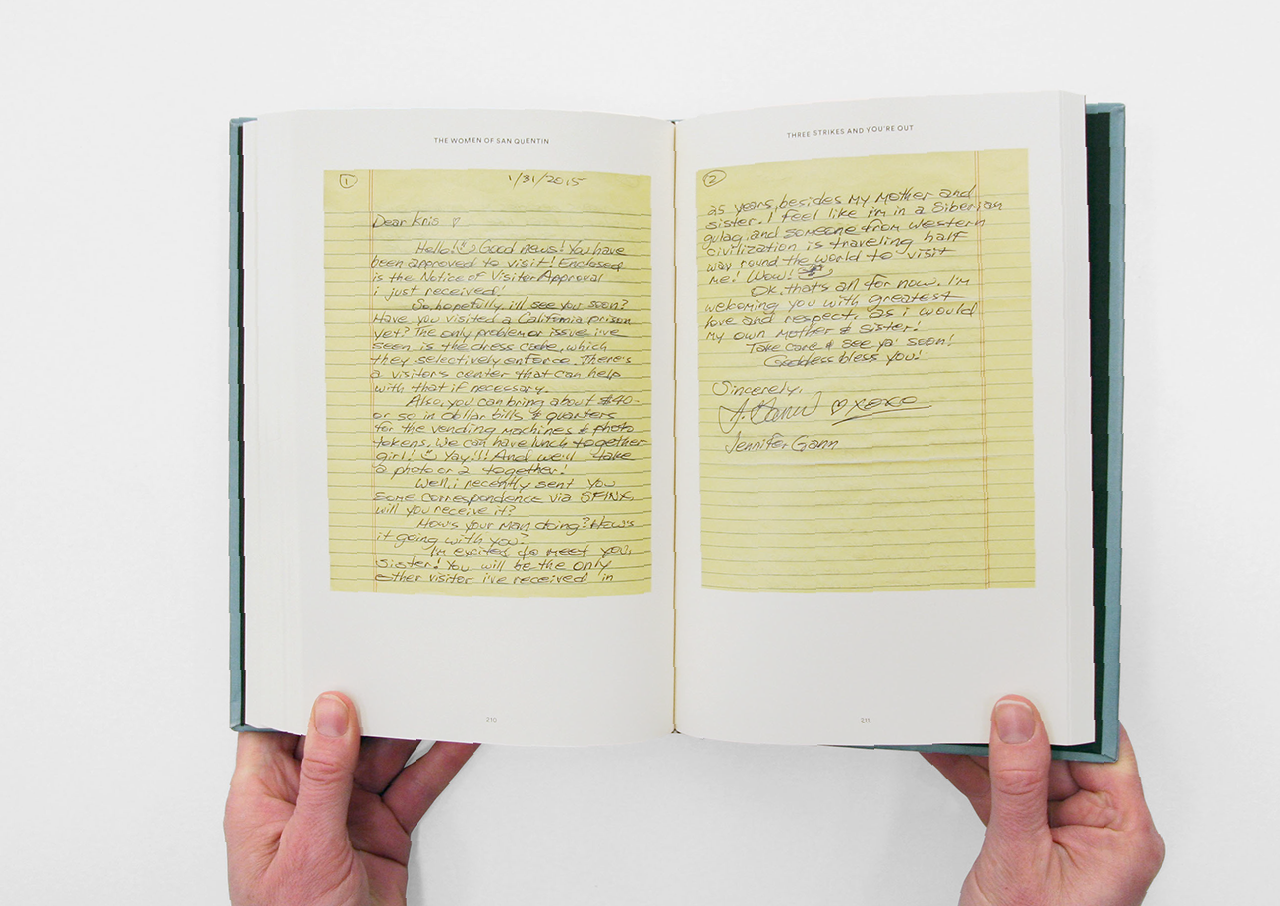 THE WOMEN OF SAN QUENTIN
1
1/31/2015
Dear Kris ♡
Hello! Good news! You have
been approved to visit! Enclosed
is the Notice of Visitor Approval
i just received!
So, hopefully, i'll see you soon?
Have you visited a California prison
yet? The only problem or issue i've
seen is the dress code, which
they selectively enforce. There's
a visitors center that can help
with that if necessary.
Also, you can bring about $40-
or so in dollar bills & quarters
for the vending machines & photo
tokens. We can have lunch together
girl! Yay!!! And we'll take
a photo or 2 together!
Well, i recently sent you
some correspondence via SFINX,
will you receive it?
How's your man doing? How's
it going with you?
I'm excited to meet you,
sister! You will be the only
other visitor i've received in
210
THREE STRIKES AND YOU'RE OUT
2
25 years, besides my mother and
sister. I feel like i'm in a Siberian
gulag, and someone from western
civilization is traveling half
way round the world to visit
me! Wow!
Ok, thats all for now. I'm
welcoming you with greatest
love and respect, as i would
my own mother & sister!
Take care & see ya' soon!
Goddess bless you!
Sincerely,
J. Gann ♡ xoxo
Jennifer Gann
211